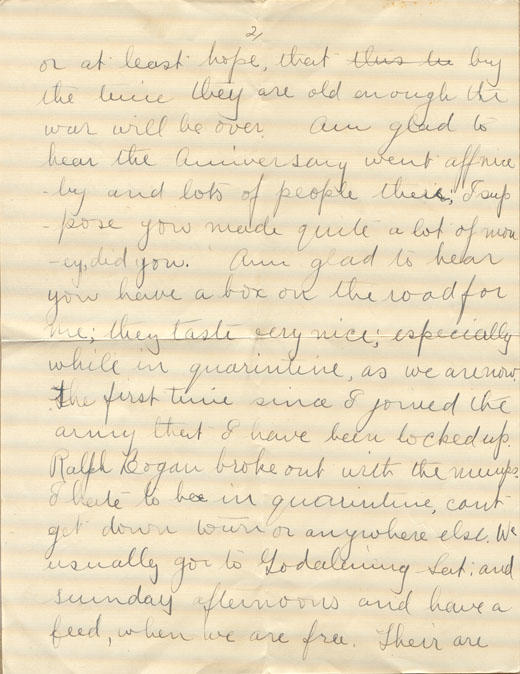 2,
or at least hope, that ~~this be~~ by
the time they are old enough the
war will be over. Am glad to
hear the Anniversary went off nice
-ly and lots of people their; I sup
-pose you made quite a lot of mon
-ey, did you. Am glad to hear
you have a box on the road for
me; they taste very nice; especially
while in quarintine, as we are now.
The first time since I joined the
army that I have been locked up.
Ralph Logan broke out with the mumps.
I hate to be in quarintine, cant
get down town or anywhere else. We
usually go to Godalming Sat. and
sunday afternoons and have a
feed, when we are free. Their are